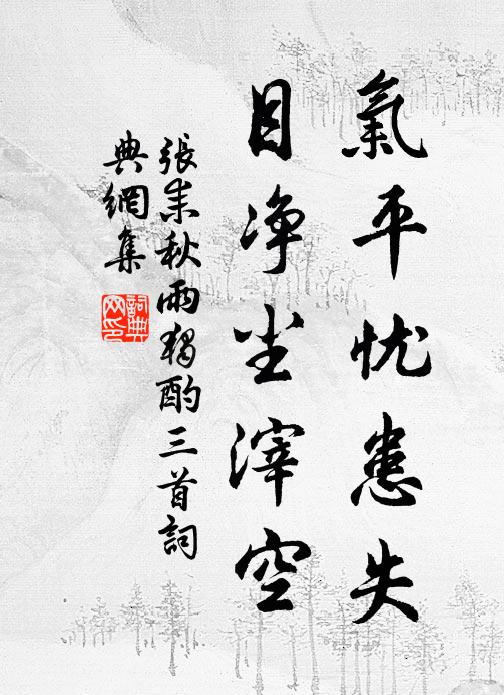 氣平忧患失
目净尘滓空
張耒秋雨獨酌三首詞
典網集
詞典网印